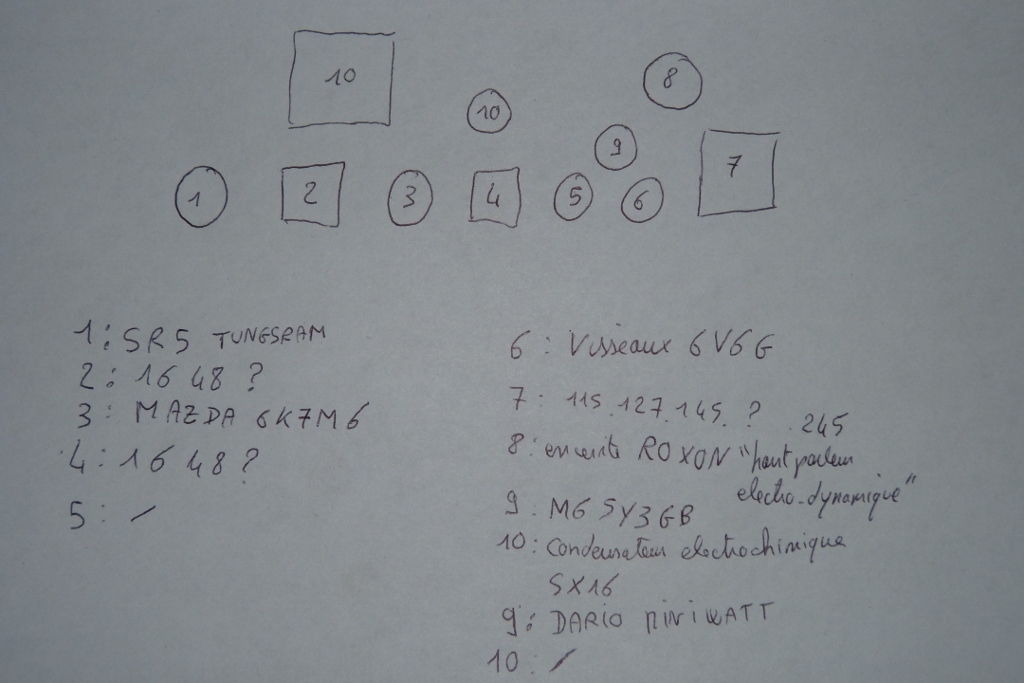 10
8
10
9
7
1
2
3
4
5
6
1: SR5 TUNGSRAM
2: 16 48 ?
3: MAZDA 6K7M6
4: 16 48 ?
5: /
6: Visseaux 6V6G
7: 115.127.145. ? .245
8: enceinte ROXON "haut parleur
electro-dynamique"
9: M6 5Y3GB
10: Condensateur electrochimique
5X16
9: DARIO MINIWATT
10: /